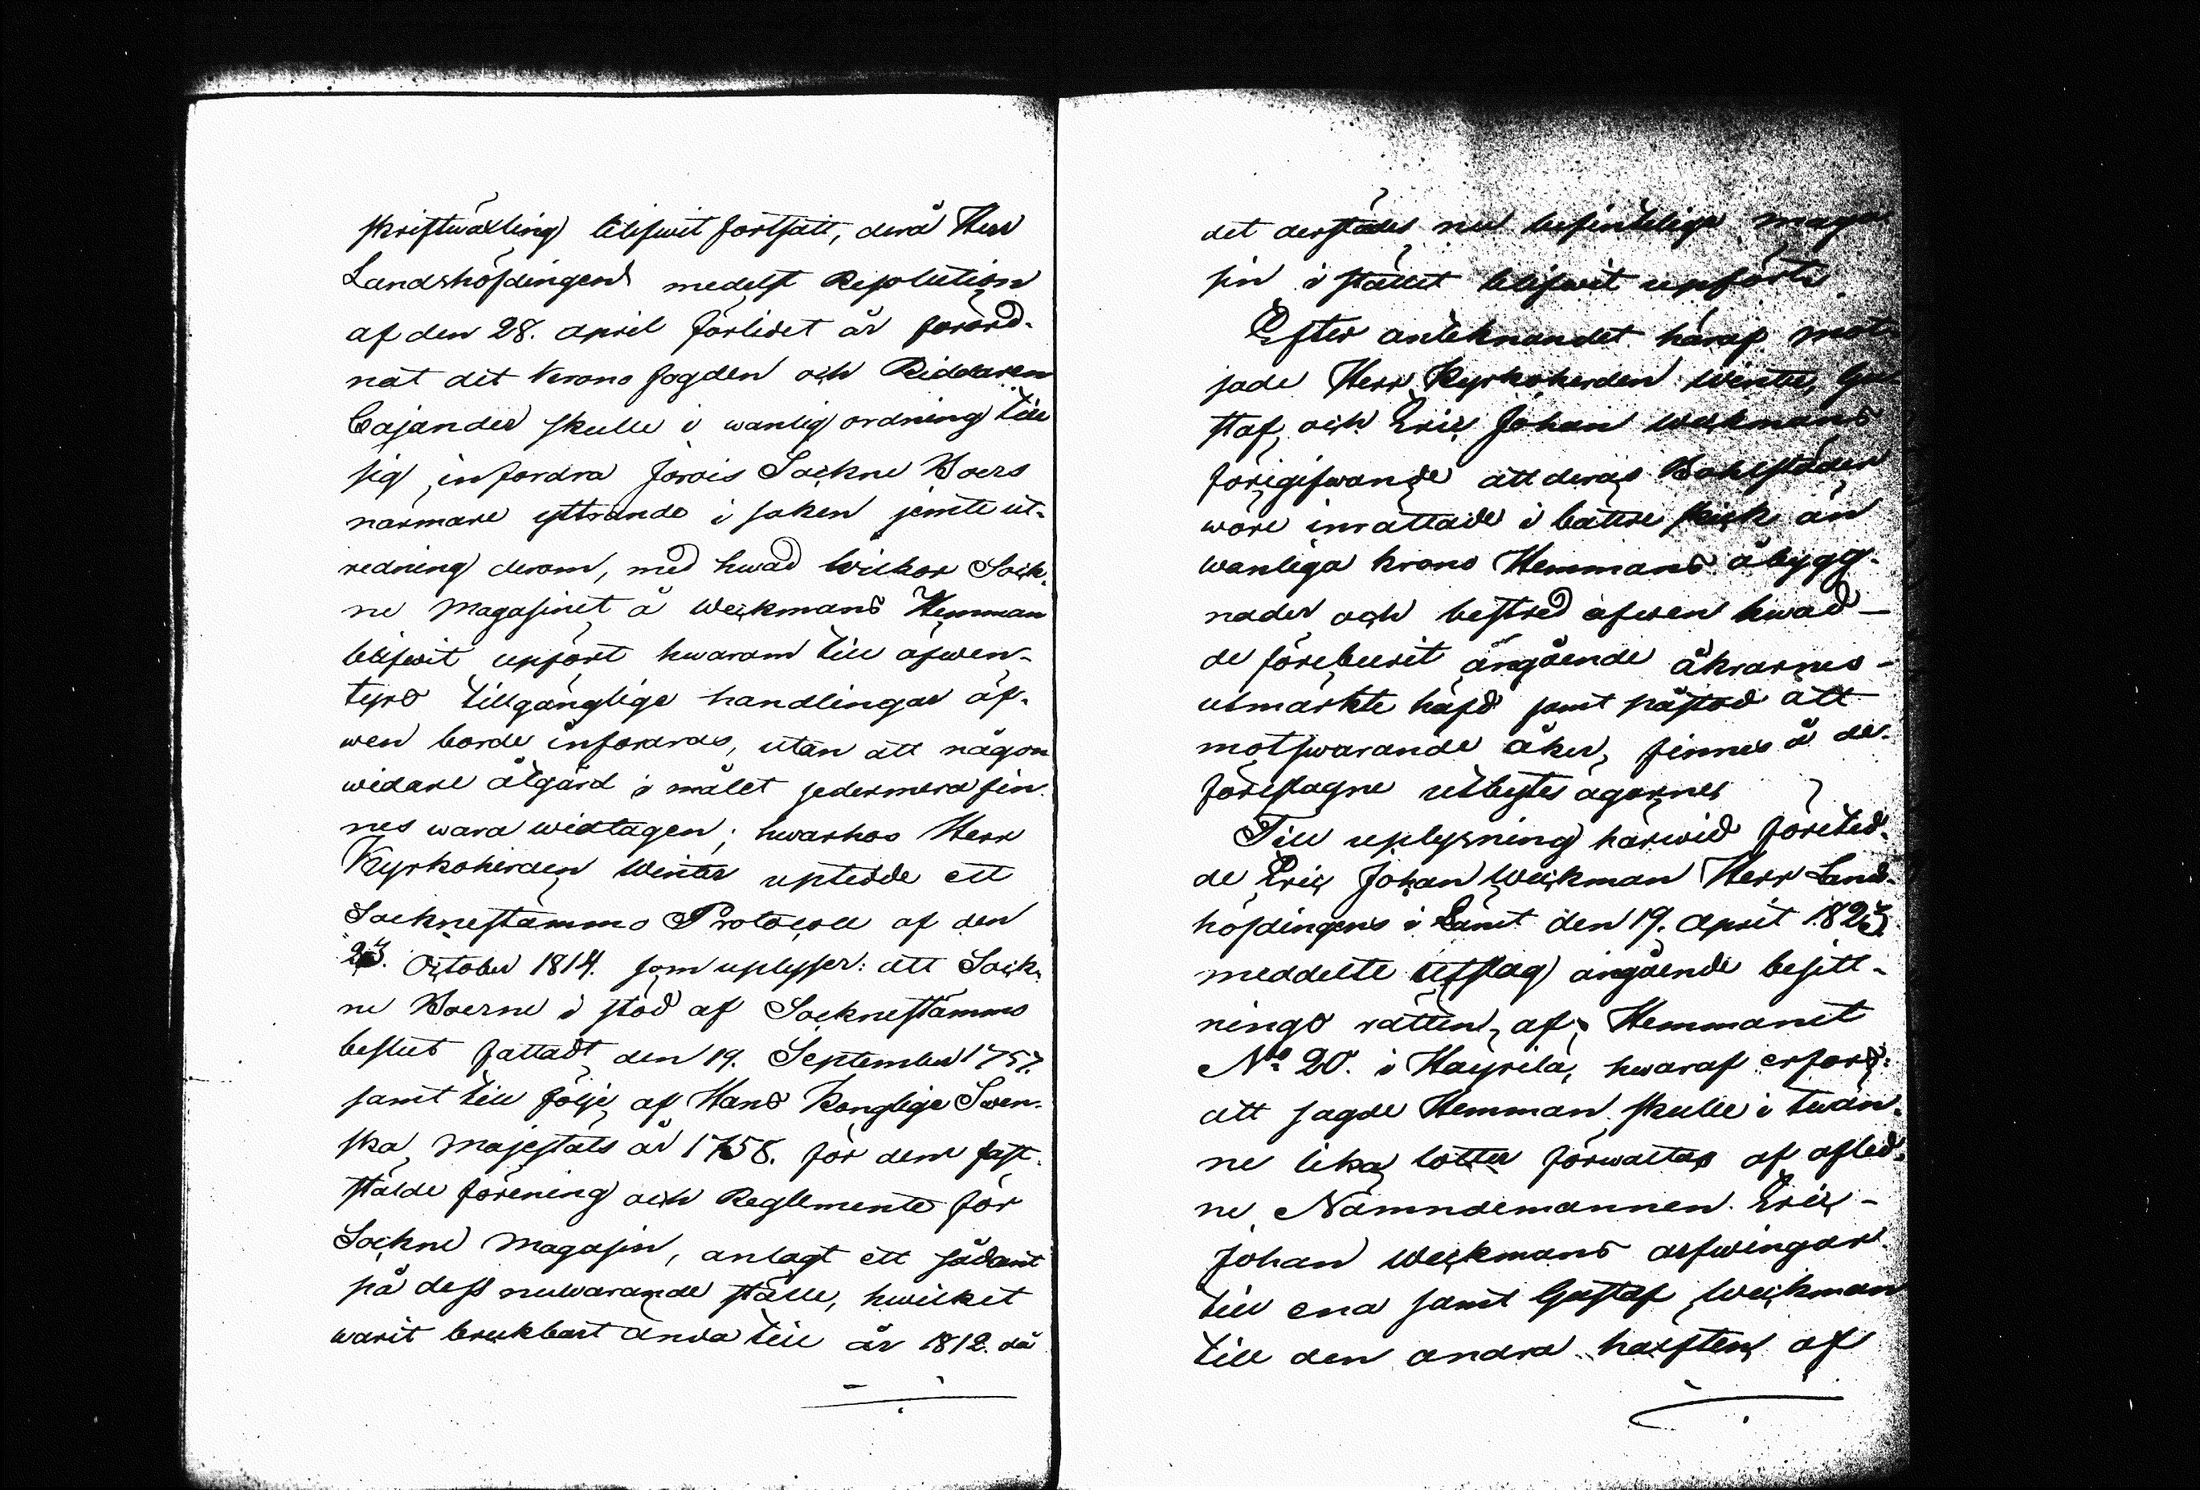 skriftwäxling blifwit fortsatt, derå Herr
Landshöfdingen medelst Resolution
af den 28. april förlidet år förord-
nat det Krono fogden och Riddaren
Cajander skulle i wanlig ordning till
sig infordra Jorois Sockne Boers
närmare yttrande i saken jemte ut-
redning derom, med hwad wilkor Sock-
ne Magasinet å Weckmans Hemman
blifwit upfört hwarom till äfwen-
tyrs tillgänglige handlingar äf-
wen borde infordras, utan att någon
widare åtgärd i målet sedermera fin-
nes wara widtagen; hwarhos Herr
Kyrkoherden Winter uptedde ett
Socknestämmo Protocoll af den
23. October 1814. som uplyser: att Sock-
ne Boerne i stöd af Socknestämmo
beslut fattadt den 19. September 1757.
samt till följe af Hans Konglige Swen-
ska Majestäts år 1758. för dem fast-
stälde förening och Reglemente för
Sockne Magasin, anlagt ett sådant
på dess nuwarande ställe, hwilket
warit brukbart ända till år 1812. då
det derstädes nu befintelige maga-
sin i stället blifwit upfördt.
Efter anteknandet häraf mot-
sade Herr Kyrkoherden Winter, Gu-
staf och Eric Johan Weckmans
föregifwande att deras Bohlstäder
wore inrättade i bättre skick än
wanliga Krono Hemmans åbygg-
nader och bestred äfwen hwad
de förebeurit angående åkrarnes
utmärkte häfd samt påstod att
motswarande åker, finnes å de
föreslagne utbytes ägorne.
Till uplysning härwid företed-
de Eric Johan Weckman Herr Lands-
höfdingens i Länet den 19. April 1823.
meddelte utslag angående besitt-
nings rätten af Hemmanet
No 20. i Häyrilä, hwaraf erfors:
att sagde Hemman skulle i twän-
ne lika lotter förwaltas af afled-
ne Nämndemannen Eric
Johan Weckmans arfwingar
till ena samt Gustaf Weckman
till den andra hälften af